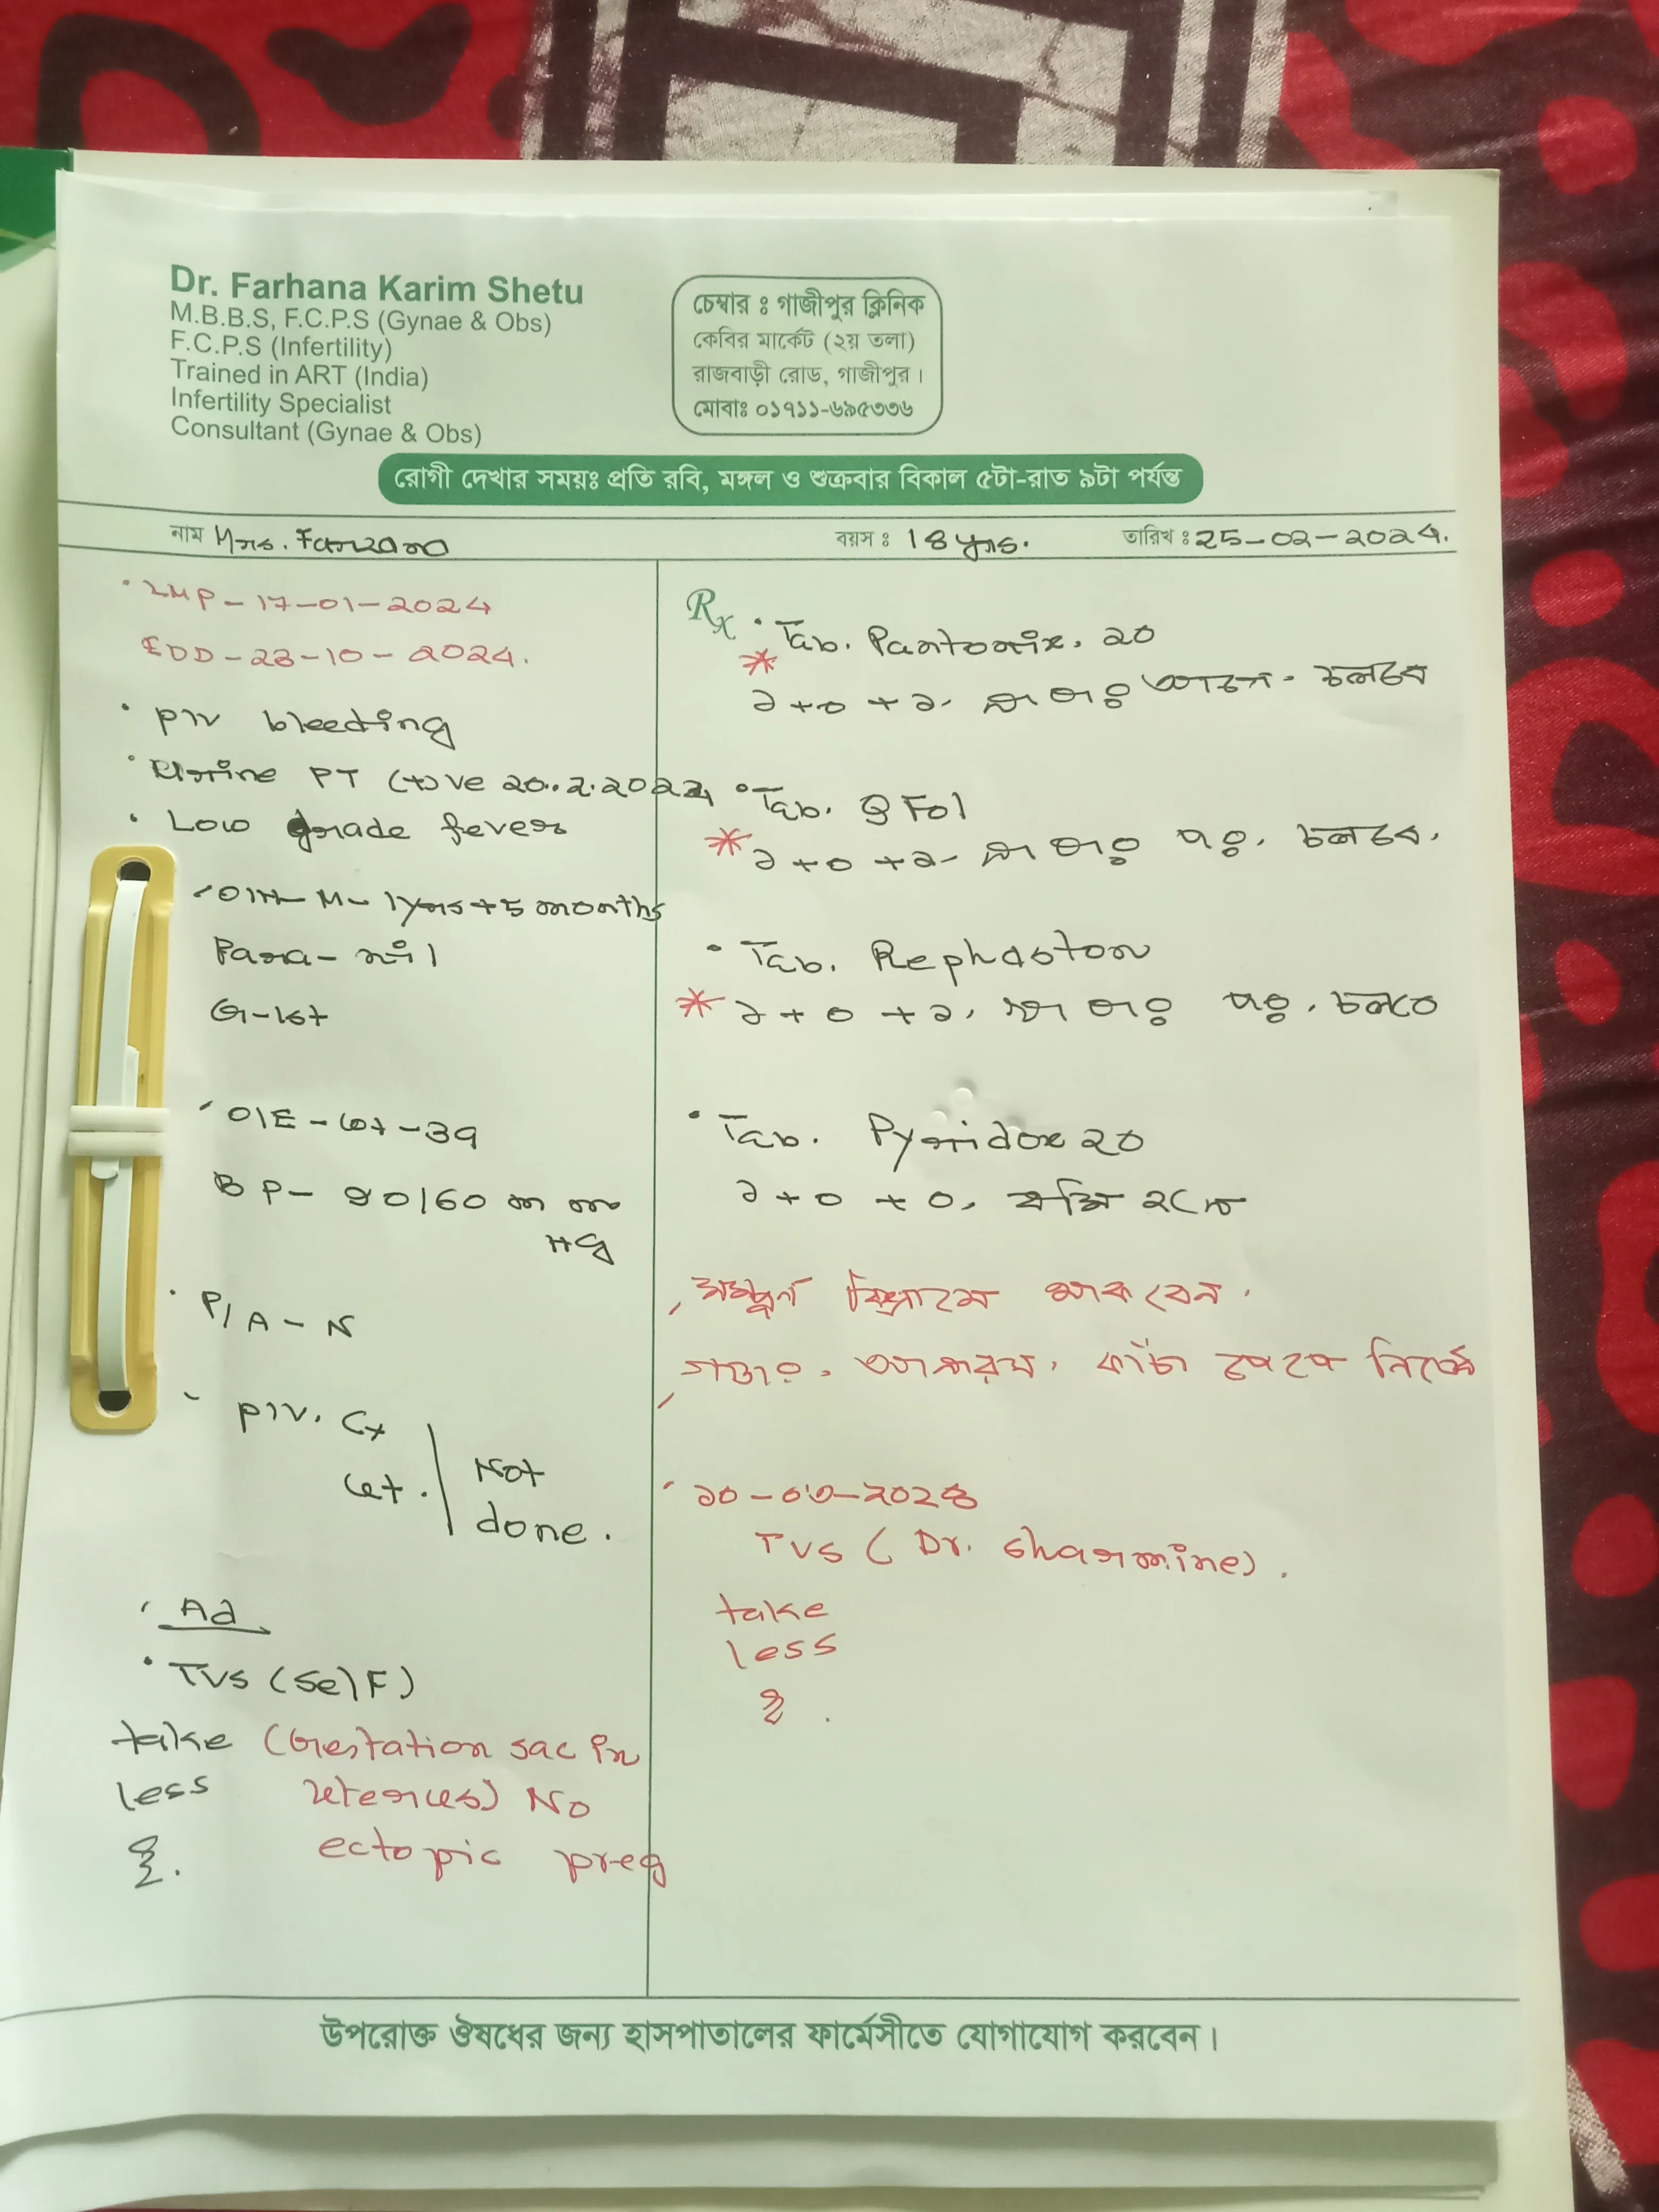 Dr. Farhana Karim Shetu
M.B.B.S, F.C.P.S (Gynae & Obs)
F.C.P.S (Infertility)
Trained in ART (India)
Infertility Specialist
Consultant (Gynae & Obs)
চেম্বার ঃ গাজীপুর ক্লিনিক
কেবির মার্কেট (২য় তলা)
রাজবাড়ী রোড, গাজীপুর।
মোবাঃ ০১৭১১-৬৯৫৩৩৬
রোগী দেখার সময়ঃ প্রতি রবি, মঙ্গল ও শুক্রবার বিকাল ৫টা-রাত ৯টা পর্যন্ত
নাম Mrs. Farzana বয়স ঃ 18 yrs. তারিখ ঃ 25-02-2024.
LMP-17-01-2024
EDD-23-10-2024.
P/V bleeding
Urine PT (+)ve
Low grade fever
O/H- M- 1yrs+5 months
Para-nil
G-1st
O/E-wt-39
BP- 90/60 mm
Hg
P/A-N
P/V. Cx
Ut.
Not
done.
Ad
TVS (Self)
take (Gestation sac in
less uterus) No
ectopic preg
Rx
Tab. Pantonix. 20
১+০+১. আগে. চলবে
Tab. Q Fol
১+০+১- পর. চলবে.
Tab. Rephaston
১+০+১, পর. চলবে
Tab. Pyridox 20
১+০+০, বমি হলে
সম্পূর্ণ বিশ্রামে থাকবেন.
আনারস. কাঁচা পেপে নিষেধ
১০-০৩-২০২৪
TVS (Dr. Sharmine).
take
less
উপরোক্ত ঔষধের জন্য হাসপাতালের ফার্মেসীতে যোগাযোগ করবেন।